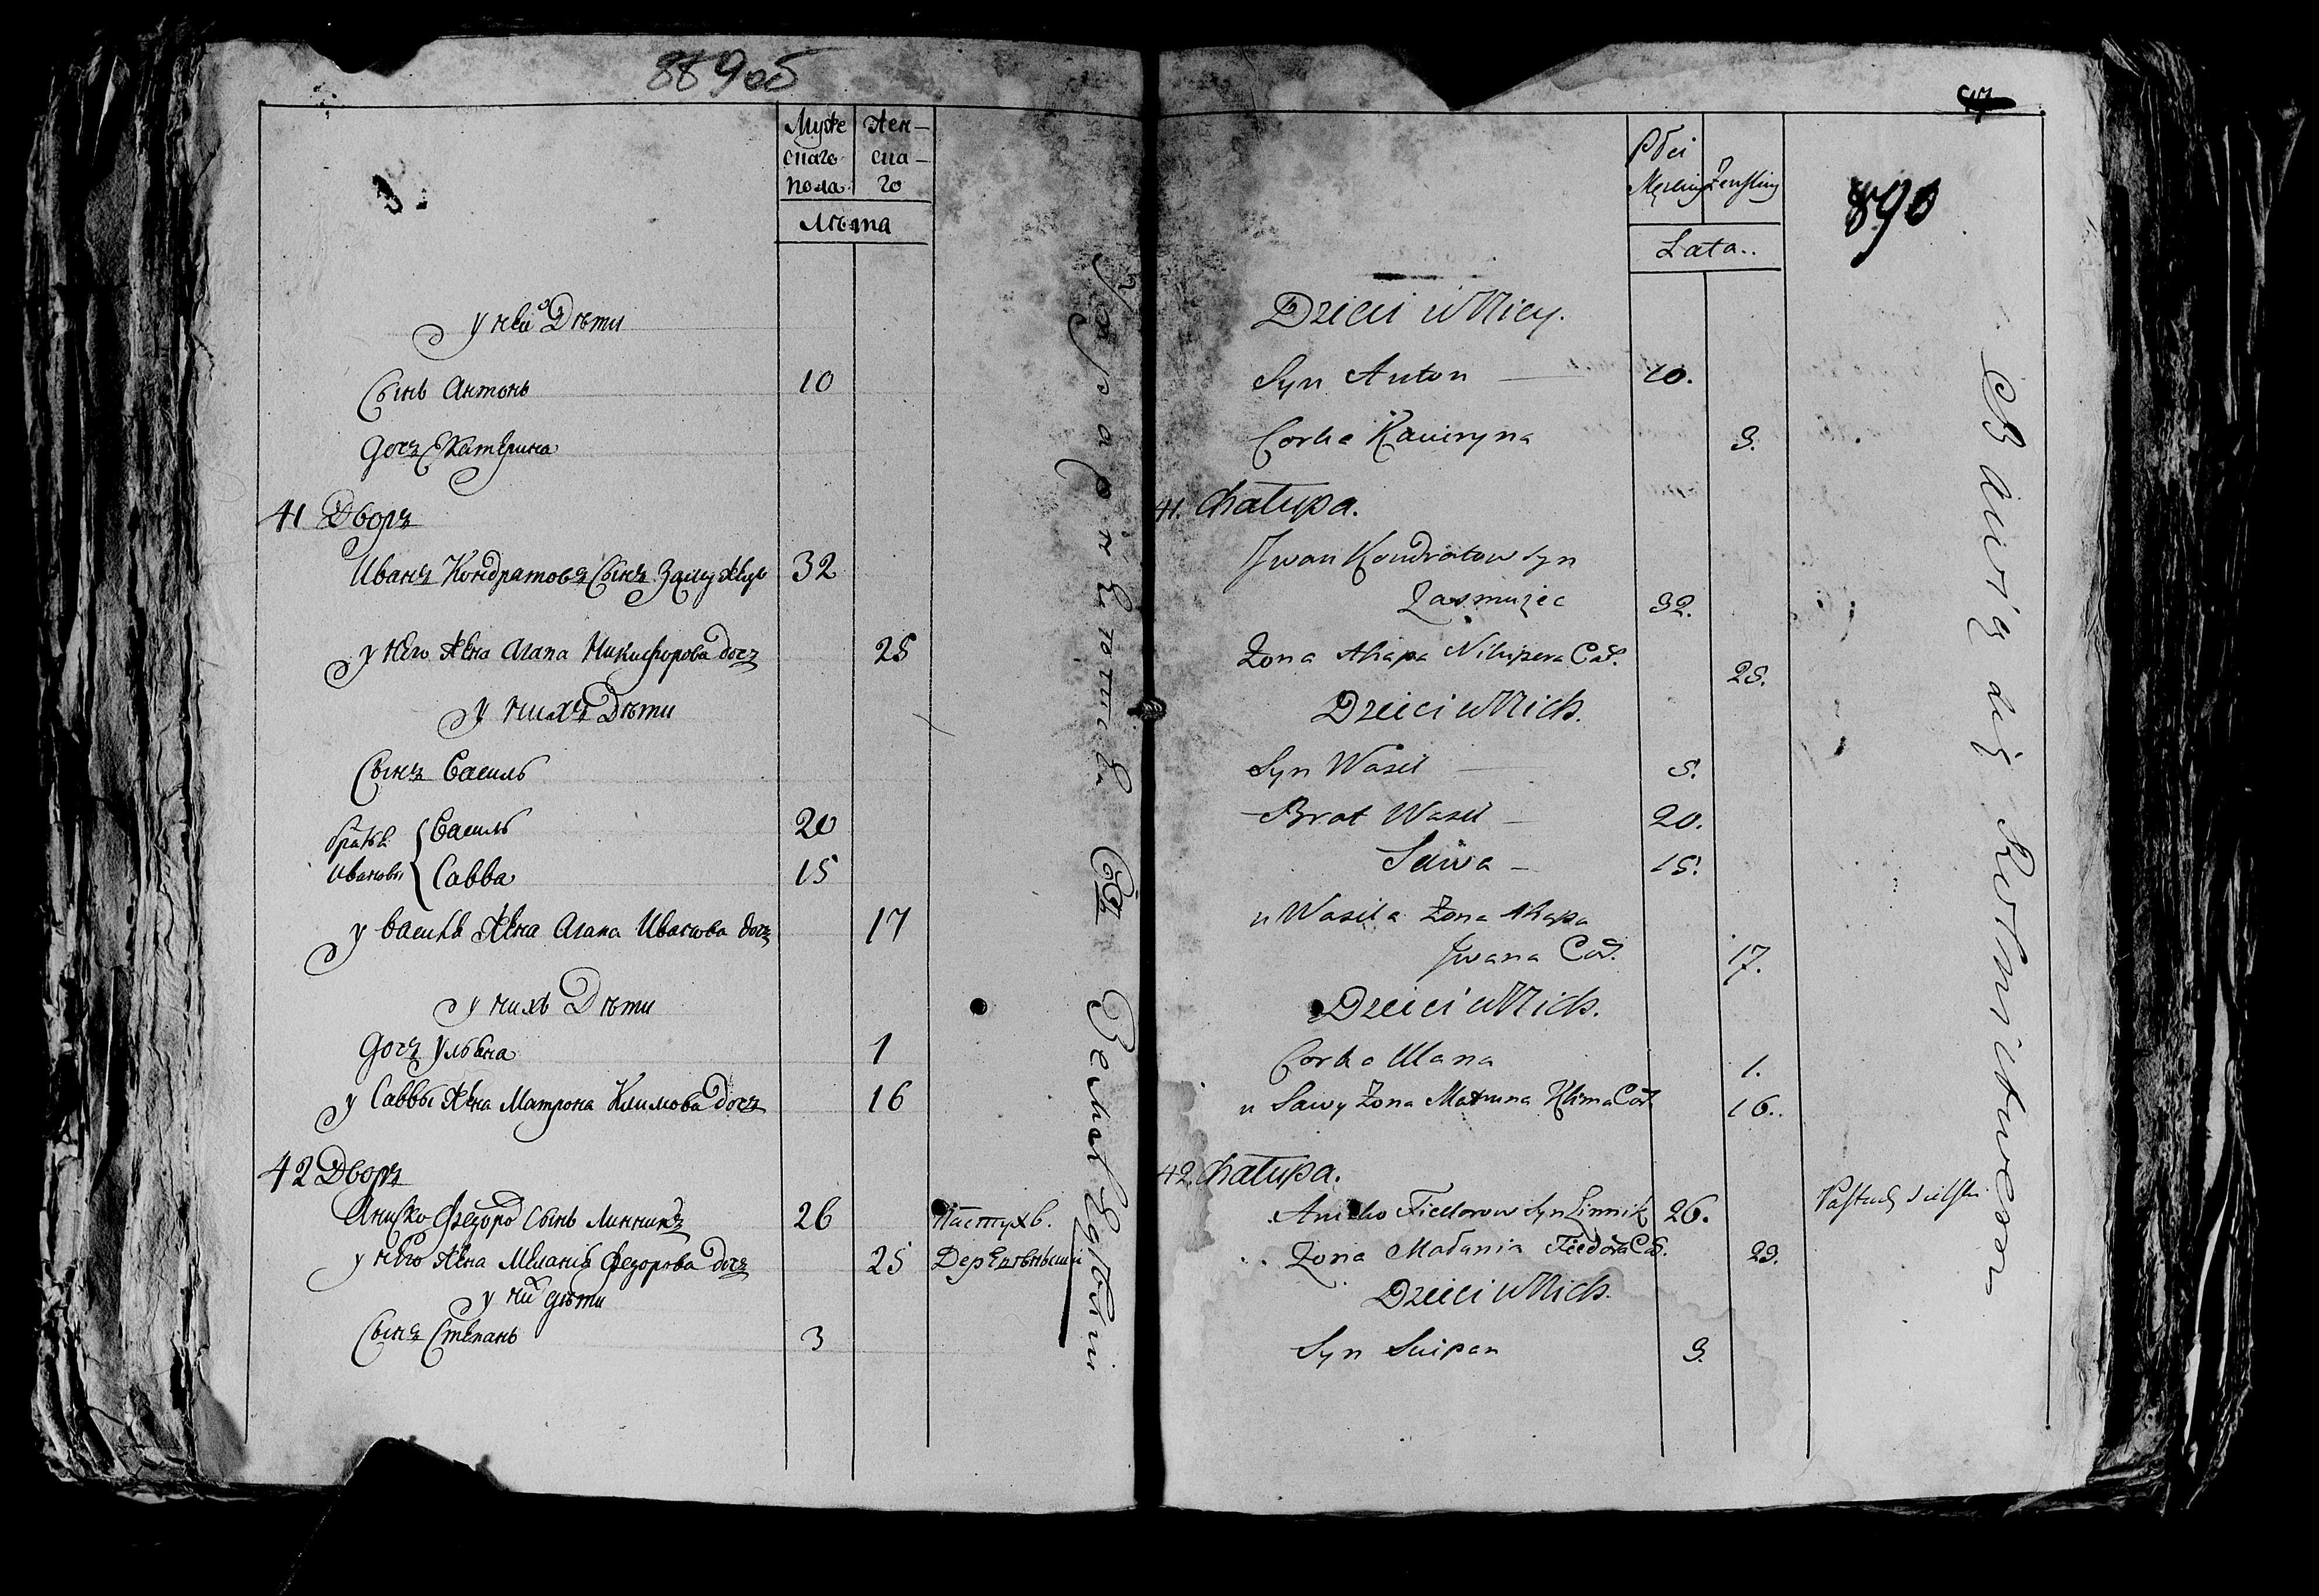 889об
Муже
скаго
пола
Жен-
ска-
го
Лѣта
у неи Дѣти
Сынъ Антонъ 10
Дочъ Катерина
41 Дворъ
Иванъ Кондратовъ Сынъ 32
у него жена Агапа Никифорова дочъ 25
у нихъ Дѣти
Сынъ Василь
братья Ивановы { Василь 20
Савва 15
у Василя жена Агапа Иванова дочъ 17
у нихъ Дѣти
Дочъ Ульяна 1
у Саввы жена Матрона Климова Дочъ 16
42 Дворъ
Аниско Федоро Сынъ Линникъ 26 Пастухъ
у него жена Мелания Федорова дочъ 25 Деревенский
у них дѣти
Сынъ Степанъ 3
890
Płci
Męzkiey Zenskiey
Lata..
Dzieci u Niey.
Syn Anton 10.
Corka Katiryna 3.
41. Chałupa.
Jwan Kondratow Syn
32.
Zona Ahapa Nikipera Cor. 25.
Dzieci u Nich.
Syn Wasil 5.
Brat Wasil 20.
Sawa 15.
u Wasila Zona Ahapa
Jwana Cor. 17.
Dzieci u Nich.
Corka Ulana 1.
u Sawy Zona Matruna Klima Cor. 16.
42. Chałupa.
Anisko Fiedorow Syn Linnik 26. Pastuch sielski
Zona Małania Fiedora Cor. 23.
Dzieci u Nich.
Syn Scipan 3.